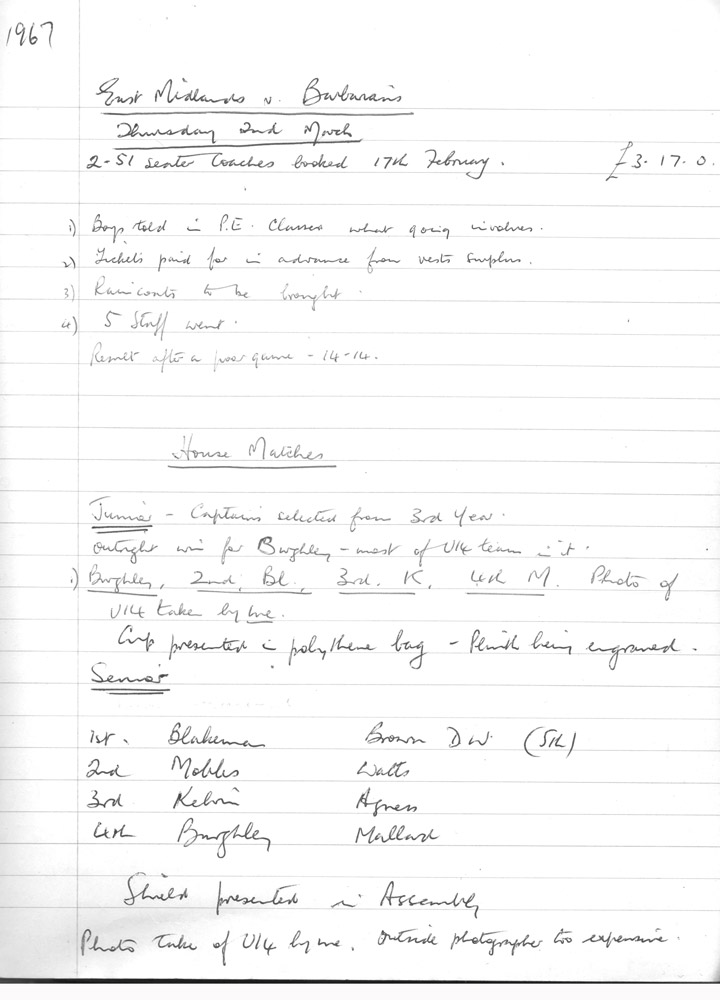 1967
East Midlands v. Barbarians
Thursday 2nd March
2-51 seater coaches booked 17th February. £3.17.0.
1) Boys told in P.E. Classes what going involves.
2) Tickets paid for in advance from vests surplus.
3) Raincoats to be brought.
4) 5 Staff went.
Result after a poor game - 14-14.
House Matches
Junior - Captains selected from 3rd Year.
outright win for Burghley - most of U14 team in it.
1) Burghley, 2nd, Bl., 3rd. K, 4th M. Photo of
U14 take by me.
Cup presented in polythene bag - Plinth being engraved.
Senior
1st. Blakeman Brown D W. (5th)
2nd Mobbs Watts
3rd Kelvin Agness
4th Burghley Mallard
Shield presented in Assembly
Photo take of U14 by me. outside photographer too expensive.